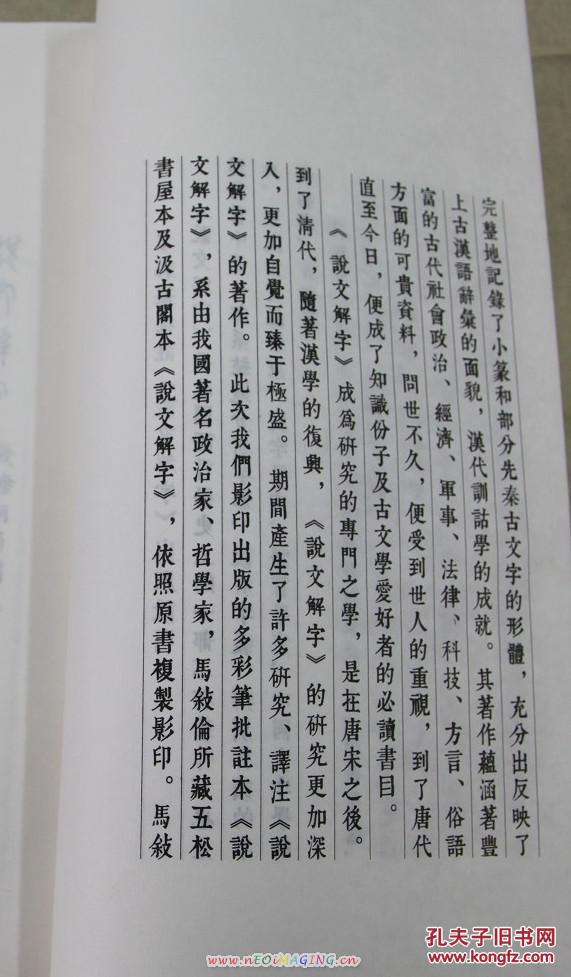 完整地記錄了小篆和部分先秦古文字的形體，充分出反映了
上古漢語辭彙的面貌，漢代訓詁學的成就。其著作蘊涵著豐
富的古代社會政治、經濟、軍事、法律、科技、方言、俗語
方面的可貴資料，問世不久，便受到世人的重視，到了唐代
直至今日，便成了知識份子及古文學愛好者的必讀書目。
《說文解字》成爲研究的專門之學，是在唐宋之後。
到了清代，隨著漢學的復興，《說文解字》的研究更加深
入，更加自覺而臻于極盛。期間產生了許多研究、譯注《說
文解字》的著作。此次我們影印出版的多彩筆批註本《說
文解字》，系由我國著名政治家、哲學家，馬敍倫所藏五松
書屋本及汲古閣本《說文解字》，依照原書複製影印。馬敍
www.nEOiMAGING.cn
孔夫子旧书网
www.kongfz.com